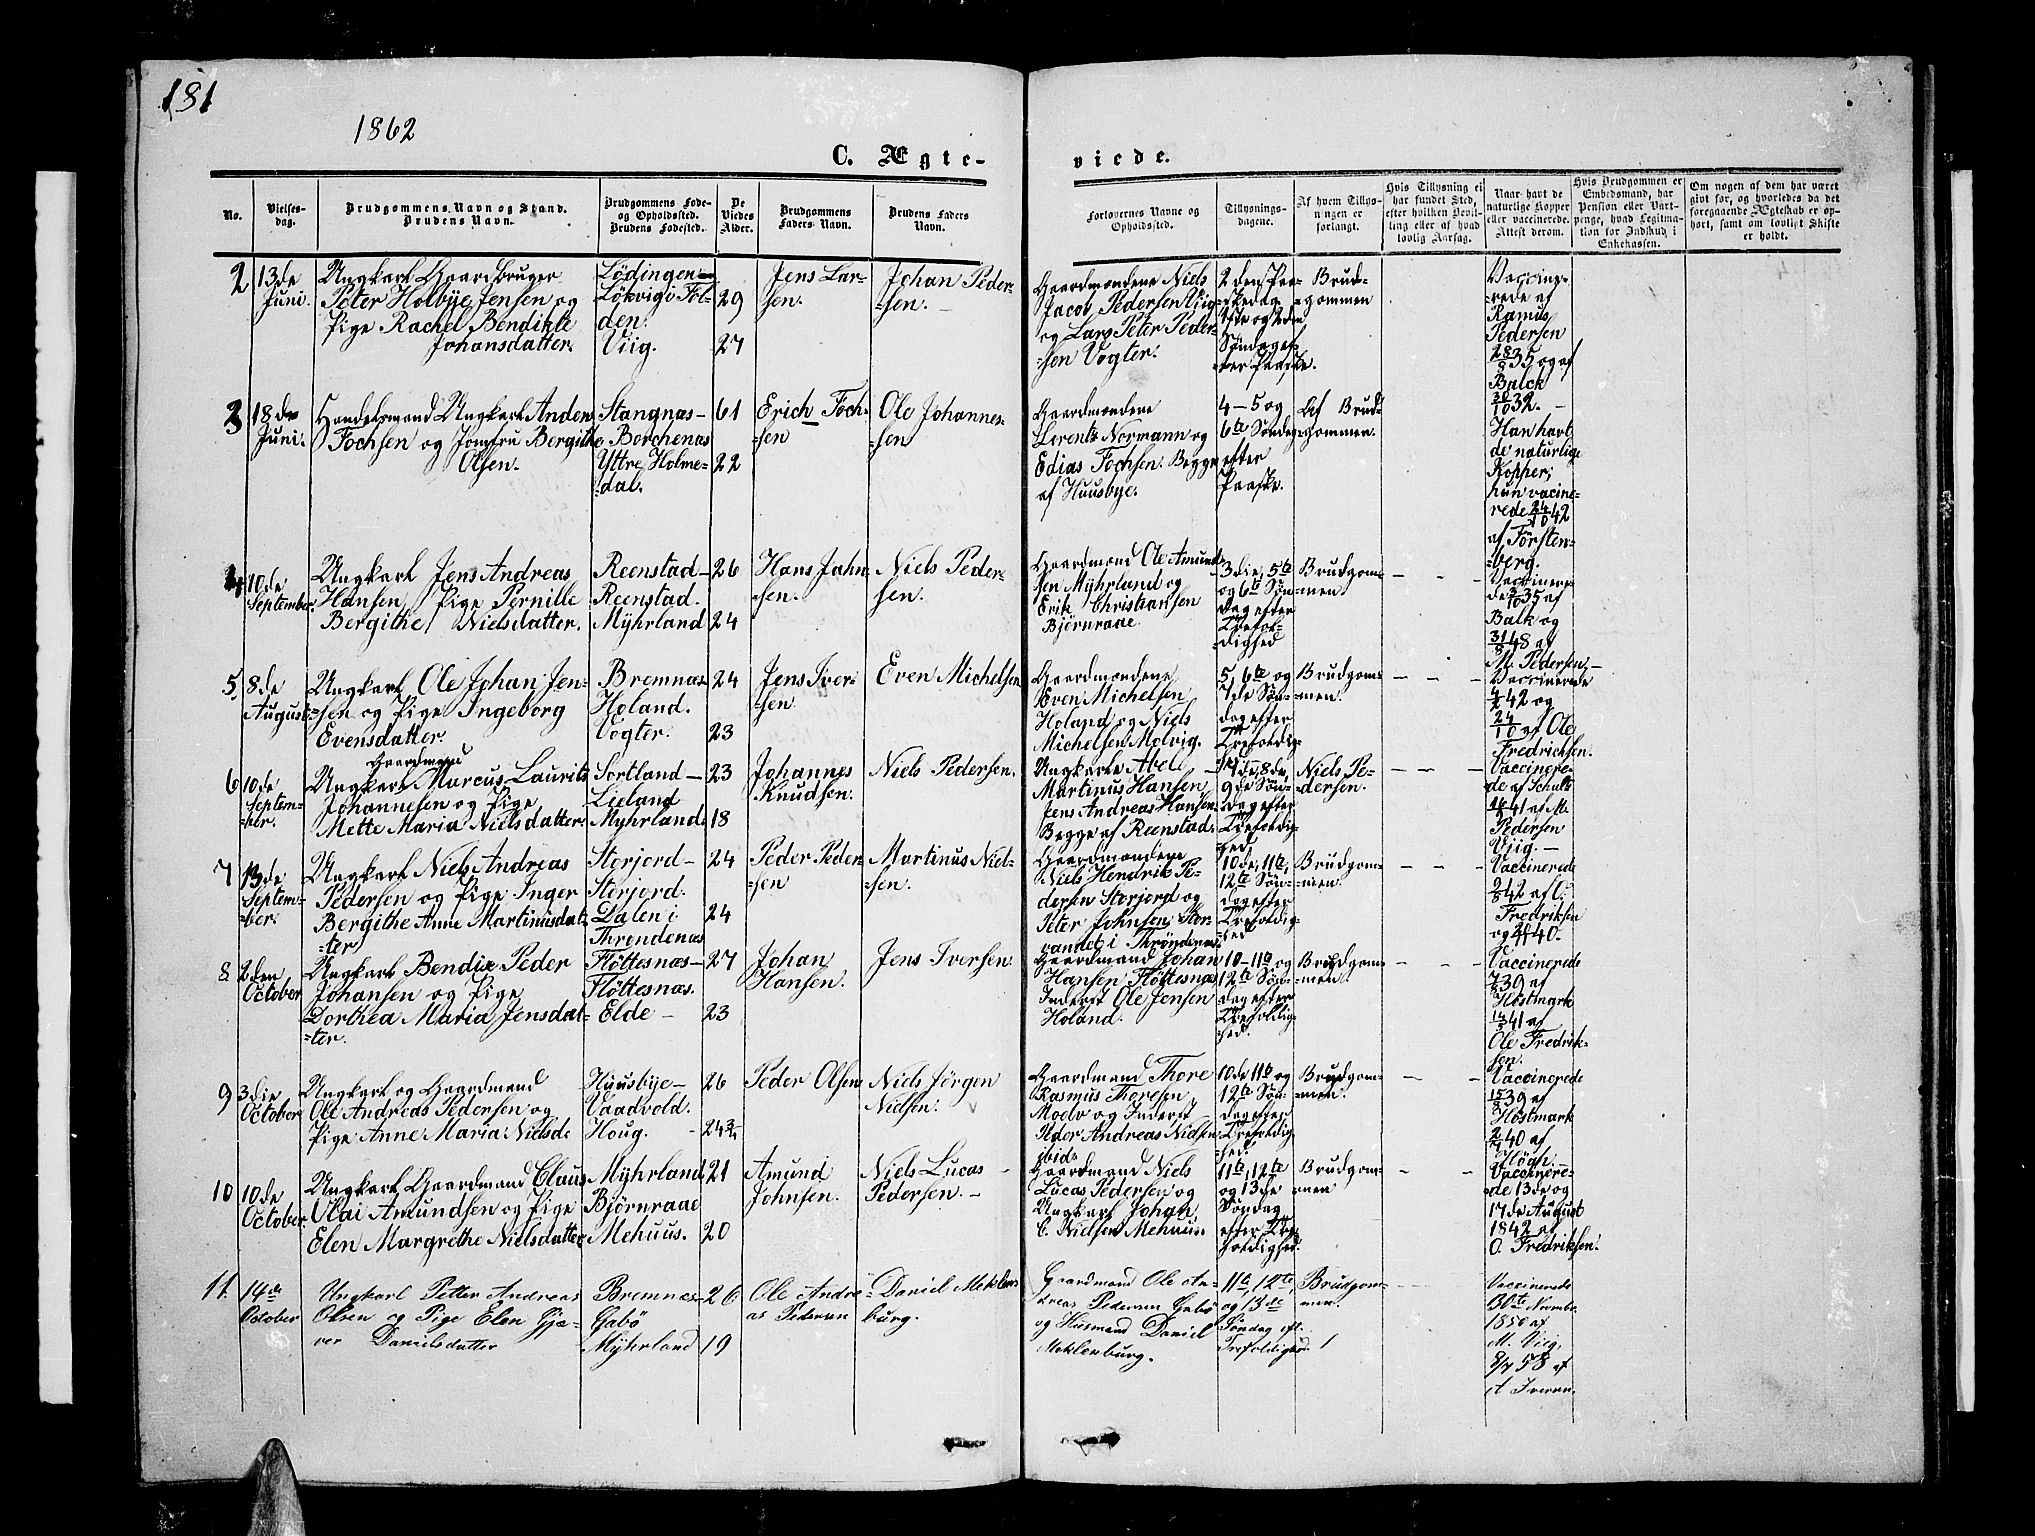 181
1862
C. Ægte-
viede.
No.
Vielses-
dag.
Brudgommens Navn og Stand.
Brudens Navn.
Brudgommens Føde-
og Opholdssted.
Brudens Fødested.
De
Viedes
Alder.
Brudgommens
Faders Navn.
Brudens Faders
Navn.
Forlovernes Navne og
Opholdssted.
Tillysnings-
dagene.
Af hvem Tillys-
ningen er
forlangt.
Hvis Tillysning ei
har fundet Sted,
efter hvilken Bevil-
ling eller af hvad
lovlig Aarsag.
Naar havt de
naturlige Kopper
eller vaccinerede.
Attest derom.
Hvis Brudgommen er
Embedsmand, har
Pension eller Vart-
penge, hvad Legitima-
tion for Indskud i
Enkekassen.
Om nogen af dem har været
gift før, og hvorledes da det
foregaaende Ægteskab er op-
hørt, samt om lovligt Skifte
er holdt.
2
13de
Juni.
Ungkarl Gaardbruger
Peter Holbye Jensen og
Pige Rachel Bendikte
Johansdatter.
Lödingen
Lökvig i Fol-
den.
Viig.
29
27
Jens Lar-
sen.
Johan Peder-
sen.
Gaardmændene Niels
Jacob Pedersen Viig
og Lars Peter Peder-
sen Vogter.
2den Paa-
skedag
1ste og 2den
Söndag ef-
ter Paaske.
Brud-
gommen
Vaccine-
rede af
Ramus
Pedersen
28/8 35 og af
Balck
30/10 32.
3
18de
Juni.
Handelsmand Ungkarl Anders
Fochsen og Jomfru Bergithe
Olsen.
Stangnæs-
Borchenæs
Yttre Holme-
dal.
61
22
Erich Foch-
sen
Ole Johannes-
sen
Gaardmændene
Lorentz Normann og
Edias Fochsen. Begge
af Huusbye.
4-5 og
6te Söndag
efter
Paaske.
Af Brud-
gommen.
Han havt
de naturlige
Kopper;
hun vacine-
rede 24/10 42
af Försten-
berg.
4
10de
September.
Ungkarl Jens Andreas
Hansen, Pige Pernille
Bergithe Nielsdatter.
Reenstad-
Reenstad.
Myhrland
26
24
Hans Jahn-
sen.
Niels Peder-
sen.
Gaardmand Ole Amund-
sen Myhrland og
Erik Christiansen
Björnraae.
3die, 5te
og 6te Sön-
dag efter
Trefol-
dighed
Brudgom-
men.
Balk og
31/8 48 af
M. Pedersen,
5
8de
August
Ungkarl Ole Johan Jen-
sen og Pige Ingeborg
Evensdatter.
Bremnæs
Holand.
Vogter.
24
23
Jens Iver-
sen
Even Michelsen
Gaardmændene
Even Michelsen
Holand og Niels
Michelsen Molvig.
5, 6te og
7de Sön-
dag efter
Trefoldig-
Brudgom-
men.
Vaccinerede
42 og
24/10 af Ole
Fredrichsen.
6
10de
Septem-
ber.
Gaardmand
Ungkarl Marcus Laurits
Johannesen og Pige
Mette Maria Nielsdatter
Sortland-
Lieland
Myhrland.
23
18
Johannes
Knudsen.
Niels Pedersen.
Ungkarle Abel
Martinus Hansen,
Jens Andreas Hansen
Begge af Reenstad.
7de, 8de,
9de Sön-
dag efter
Trefoldig-
hed
Niels Pe-
dersen.
Vaccinere-
de af Schult
41 af M.
Pedersen
Viig.
7
13de
Septem-
ber.
Ungkarl Niels Andreas
Pedersen og Pige Inger
Bergithe Anne Martinusdat-
ter
Storjord-
Storjord.
Dalen i
Throndenæs
24
24
Peder Peder-
sen
Martinus Niel-
sen.
Gaardmændene
Niels Hendrik Pe-
dersen Storjord og
Peter Johnsen Stor-
vandet i Thröndenæs
10de, 11te,
12te Sön-
dag efter
Trefoldig-
hed
Brudgom-
men.
Vaccinerede
9/8 42 af O.
Fredriksen
og 40.
8
2den
October
Ungkarl Bendix Peder
Johansen og Pige
Dorthea Maria Jensdat-
ter.
Flöttesnæs-
Flöttesnæs.
Elde
27
23
Johan
Hansen.
Jens Iversen
Gaardmand Johan
Hansen Flöttesnæs
Inderst Ole Jensen
Holand.
10-11te og
12te Sön-
dag efter
Trefoldig-
hed.
Brudgom-
men.
Vaccinerede
7/8 39 af
Höstmark
41 af
Ole Fredrik-
sen.
9
3die
October
Ungkarl og Gaardmand
Ole Andreas Pedersen og
Pige Anne Maria Nielsd.
Huusbye-
Vaadvold.
Houg.
26
24 3/4
Peder Olsen
Niels Jörgen
Nielsen.
Gaardmand Thore
Rasmus Thoresen
Moelv og Inderst
Peder Andreas Nielsen
ibid.
10de 11te og
12te Sön-
dag efter
Trefoldig-
hed.
Brudgom-
men.
Vaccinerede
15/8 39 af
Höstmark
40 af
10
10de
October.
Ungkarl Gaardmand Claus
Olai Amundsen og Pige
Elen Margrethe Nielsdatter
Myhrland
Björnraae
Mehuus.
21
20
Amund
Johnsen.
Niels Lucas
Pedersen.
Gaardmand Niels
Lucas Pedersen og
Ungkarl Johan
C. Nielsen Mehuus
11te, 12te
og 13de
Söndag
efter Tre-
foldighed.
Brudgom-
men
Vaccinere-
de 13de og
17de August
1842 af
O. Fredriksen.
11.
14de
October
Ungkarl Petter Andreas
Olsen og Pige Elen Gjæ-
ver Danielsdatter
Bremnæs-
Gabö
Myhrland
26
19
Ole Andre-
as Pedersen
Daniel Meklen-
burg.
Gaardmand Ole An-
dreas Pedersen Gabö
og Husmand Daniel
Meklenburg.
11te, 12te,
og 13de
Söndag eft.
Trefoldighed
Brudgom-
men.
Vaccinerede
30te Novmbr.
1850 af
M. Viig,
8/7 58 af
A Iversen.